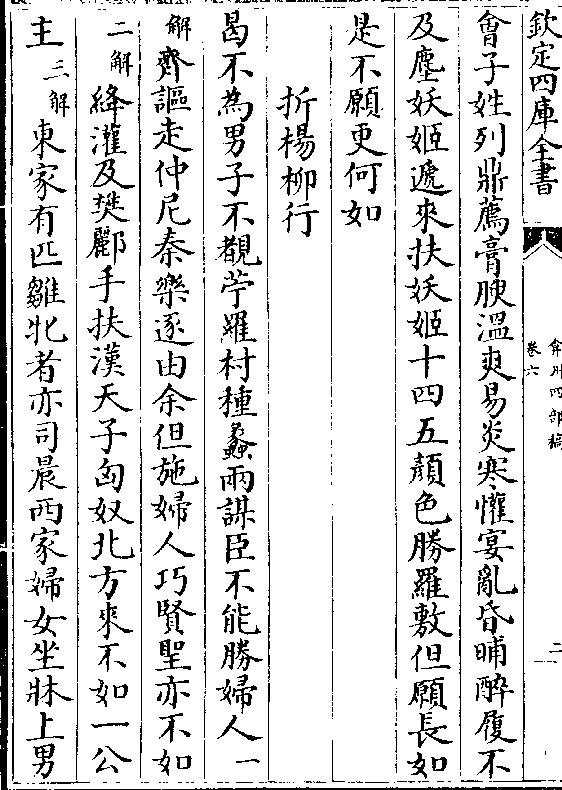 欽定四庫全書
弇州四部稿
卷六
二
會子姓列鼎薦膏腴溫爽易炎寒懽宴亂昏晡醉履不
及塵妖姬遞來扶妖姬十四五顏色勝羅敷但願長如
是不願更何如
折楊柳行
曷不為男子不覩苧羅村種蠡兩謀臣不能勝婦人一
解齊謳走仲尼秦樂逐由余但施婦人巧賢聖亦不如
二解絳灌及樊酈手扶漢天子匈奴北方來不如一公
主三解東家有匹雛牝者亦司晨西家婦女坐牀上男